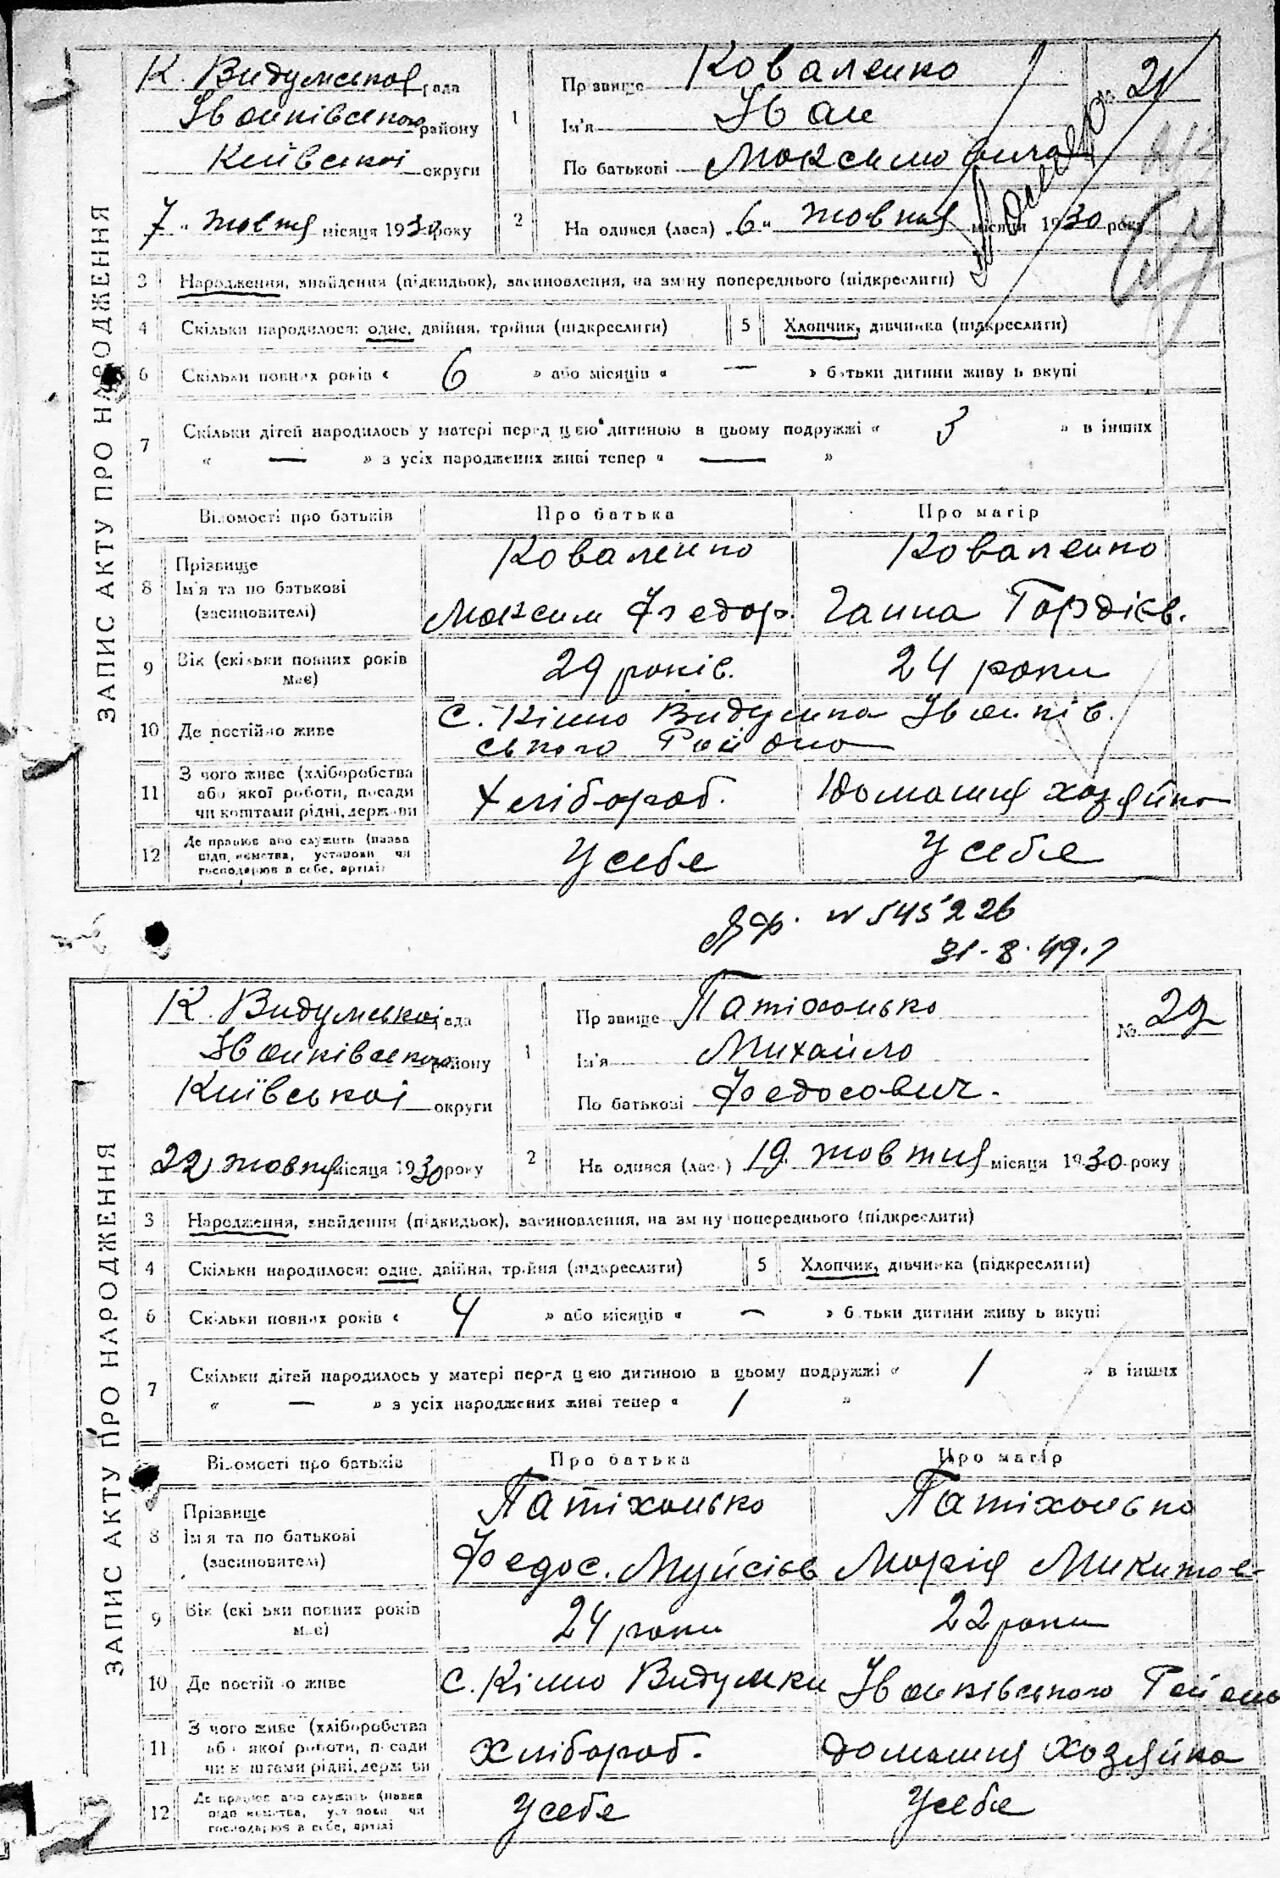 ЗАПИС АКТУ ПРО НАРОДЖЕННЯ
К. Видумської рада
Іванківського району
Київської округи
7 " жовтня місяця 1930 року
1 Прізвище Коваленко
Ім'я Іван
По батькові Максимович
№ 21
2 На одився (лася) "6" жовтня місяця 1930 року
3 Народження, знайдення (підкидьок), засиновлення, на зміну попереднього (підкреслити)
4 Скільки народилося: одне, двійня, трійня (підкреслити)
5 Хлопчик, дівчинка (підкреслити)
6 Скільки повних років « 6 » або місяців « — » батьки дитини живуть вкупі
7 Скільки дітей народилось у матері перед цією дитиною в цьому подружжі « 3 » в інших
« — » з усіх народжених живі тепер « — »
Відомості про батьків Про батька Про матір
8 Прізвище Ім'я та по батькові (засиновителі)
Коваленко Коваленко
Максим Федор. Ганна Гордієв.
9 Вік (скільки повних років має) 29 років. 24 роки
10 Де постійно живе с. Кімно Видумка Іванків.
ського Району
11 З чого живе (хліборобства або якої роботи, посади чи коштами рідні, держави
Хлібороб. Домашня хозяйка
12 Де працює або служить (назва підприємства, установи чи господарює в себе, артілі)
У себе У себе
№ 545226
31.8.49.
ЗАПИС АКТУ ПРО НАРОДЖЕННЯ
К. Видумської рада
Іванківського району
Київської округи
22 жовтня місяця 1930 року
1 Прізвище Патіюнько
Ім'я Михайло
По батькові Федосович.
№ 22
2 На одився (лас ) 19 жовтня місяця 1930 року
3 Народження, знайдення (підкидьок), засиновлення, на зміну попереднього (підкреслити)
4 Скільки народилося: одне, двійня, трійня (підкреслити)
5 Хлопчик, дівчинка (підкреслити)
6 Скільки повних років « 4 » або місяців « — » батьки дитини живуть вкупі
7 Скільки дітей народилось у матері перед цією дитиною в цьому подружжі « 1 » в інших
« — » з усіх народжених живі тепер « 1 »
Відомості про батьків Про батька Про матір
8 Прізвище Ім'я та по батькові (засиновителі)
Патіхонько Патіхонько
Федос. Муйсієв Марія Микитов-
9 Вік (скільки повних років має) 24 роки 22 роки
10 Де постійно живе с. Кімно Видумки Іванківського Району
11 З чого живе (хліборобства або якої роботи, посади чи коштами рідні, держави
Хлібороб. Домашня хозяйка
12 Де працює або служить (назва підприємства, установи чи господарює в себе, артілі
У себе У себе